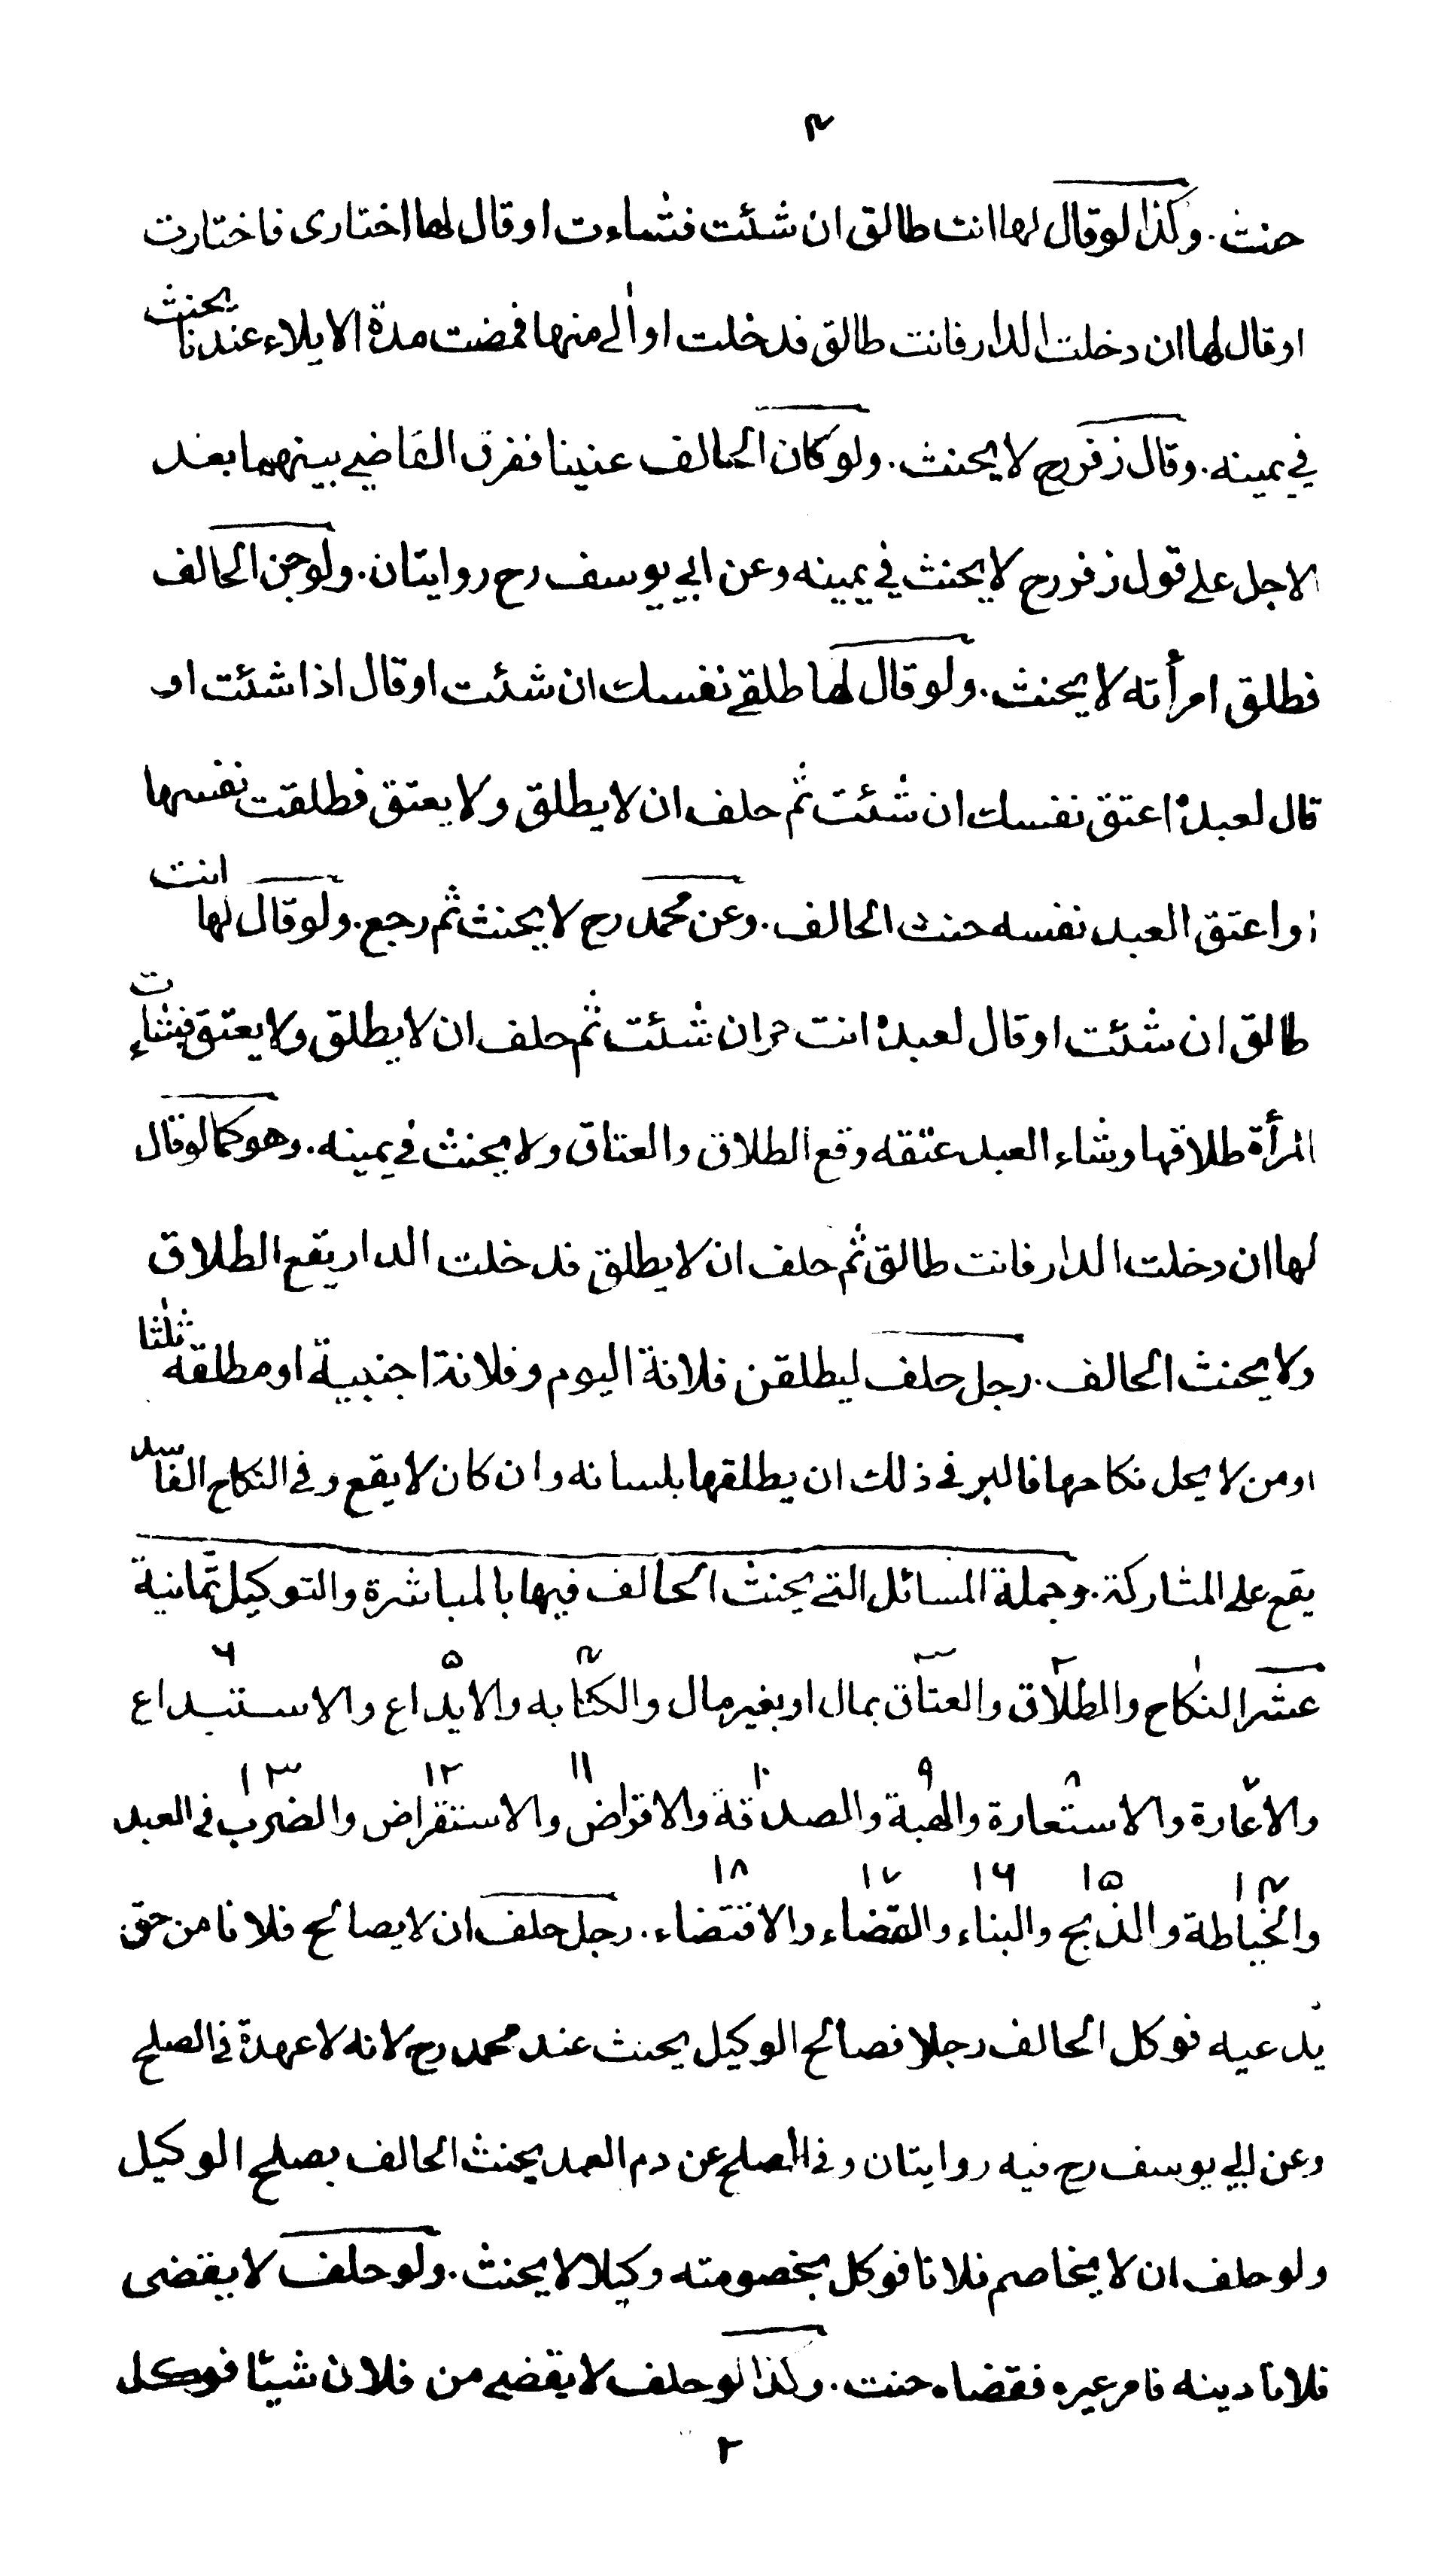 ۴
حنث. وكذا لو قال لها انت طالق ان شئت فشاءت او قال لها اختارى فاختارت
او قال لها ان دخلت الدار فانت طالق فدخلت او الى منها فمضت مدة الايلاء عندنا يحنث
في يمينه. وقال زفر رح لا يحنث. ولو كان الحالف عنينا ففرق القاضي بينهما بعد
الاجل على قول زفر رح لا يحنث في يمينه وعن ابي يوسف رح روايتان. ولو جن الحالف
فطلق امرأته لا يحنث. ولو قال لها طلقي نفسك ان شئت او قال اذا شئت او
قال لعبده اعتق نفسك ان شئت ثم حلف ان لا يطلق ولا يعتق فطلقت نفسها
او اعتق العبد نفسه حنث الحالف. وعن محمد رح لا يحنث ثم رجع. ولو قال لها انت
طالق ان شئت او قال لعبده انت حر ان شئت ثم حلف ان لا يطلق ولا يعتق فشاءت
المرأة طلاقها وشاء العبد عتقه وقع الطلاق والعتاق ولا يحنث في يمينه. وهو كما لو قال
لها ان دخلت الدار فانت طالق ثم حلف ان لا يطلق فدخلت الدار يقع الطلاق
ولا يحنث الحالف. رجل حلف ليطلقن فلانة اليوم وفلانة اجنبية او مطلقه ثلثا
او من لا يحل نكاحها فالبر في ذلك ان يطلقها بلسانه وان كان لا يقع وفي النكاح الفاسد
يقع على المشاركة. وجملة المسائل التي يحنث الحالف فيها بالمباشرة والتوكيل ثمانية
۱ ۲ ۳ ۴ ۵ ۶
عشر النكاح والطلاق والعتاق بمال او بغير مال والكتابه والايداع والاستبداع
۷ ۸ ۹ ۱۰ ۱۱ ۱۲ ۱۳
والاعارة والاستعارة والهبة والصدقة والاقراض والاستقراض والضرب في العبد
۱۴ ۱۵ ۱۶ ۱۷ ۱۸
والخياطة والذبح والبناء والقضاء والاقتضاء. رجل حلف ان لا يصالح فلانا من حق
يدعيه فوكل الحالف رجلا فصالح الوكيل يحنث عند محمد رح لانه لا عهدة في الصلح
وعن ابي يوسف رح فيه روايتان وفي الصلح عن دم العمد يحنث الحالف بصلح الوكيل
ولو حلف ان لا يخاصم فلانا فوكل بخصومته وكيلا لا يحنث. ولو حلف لا يقضى
فلانا دينه فامر غيره فقضاه حنث. وكذا لو حلف لا يقضي من فلان شيئا فوكل
۲